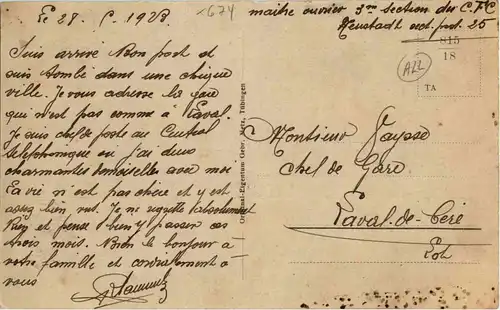 Le 28. 6. 1923
x674
maitre ouvrier 3me section du C.F.C
Neustadt sect. post. 25
Suis arrivé Bon port et
suis tombé dans une chique
ville. Je vous adresse la gare
qui n'est pas comme à Laval.
Je suis chef de poste au Central
telephonique où j'ai deux
charmantes demoiselles avec moi
La vie n'est pas chère et y est
assez bien vus. Je ne regrette absolument
Rien et pense bien y passer ces
trois mois. Bien le bonjour à
votre famille et cordialement à
vous
815
18
ALL
TA
Original-Eigentum Gebr. Metz, Tübingen
Monsieur Vaysse
Chef de Gare
Laval-de-Cère
Lot